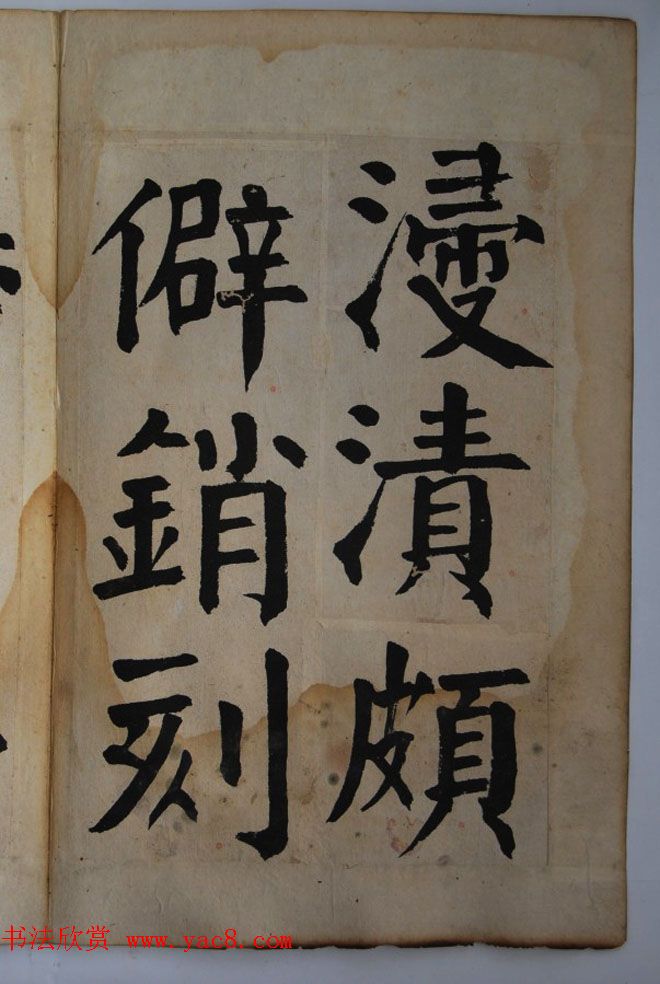 浸漬頗
僻銷刻
书法欣赏 www.yac8.com